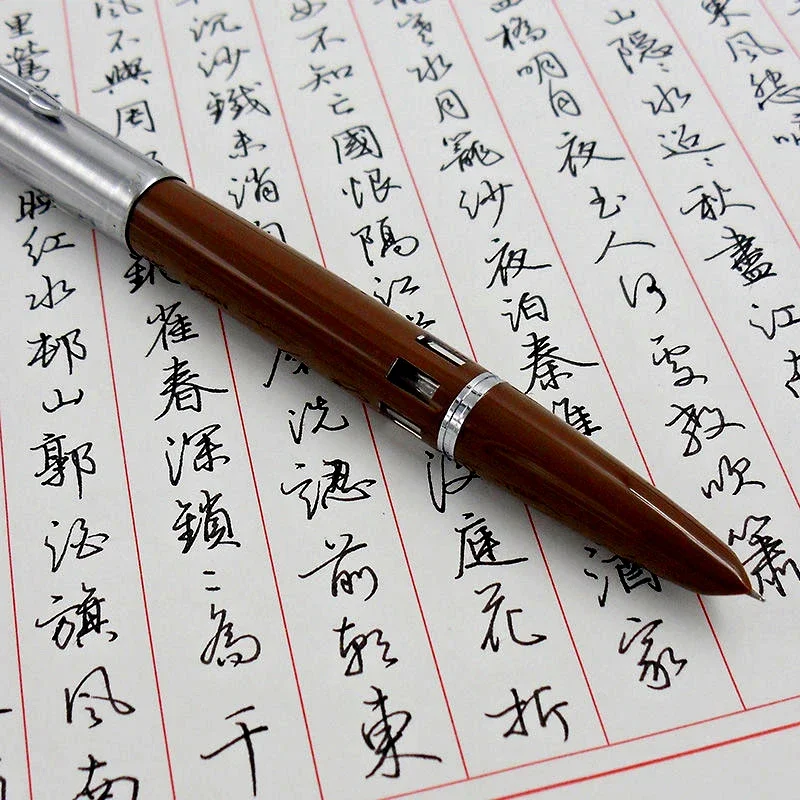 東風怨啼
山隱〻水迢〻秋盡江南
橋明月夜玉人何處教吹簫
寒水月籠沙夜泊秦淮酒家
女不知亡國恨隔江後庭花折
沉沙鐵未消自洗認前朝東
風不與周銅雀春深鎖二喬千
里鶯映紅水邨山郭酒旗風南